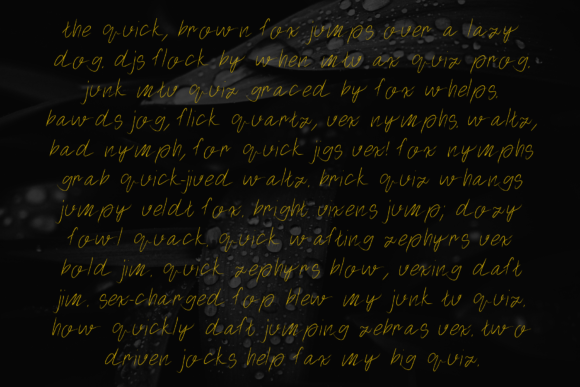 the quick, brown fox jumps over a lazy
dog. djs flock by when mtv ax quiz prog.
junk mtv quiz graced by fox whelps.
bawds jog, flick quartz, vex nymphs. waltz,
bad nymph, for quick jigs vex! fox nymphs
grab quick-jived waltz. brick quiz whangs
jumpy veldt fox. bright vixens jump; dozy
fowl quack. quick wafting zephyrs vex
bold jim. quick zephyrs blow, vexing daft
jim. sex-charged fop blew my junk tv quiz.
how quickly daft jumping zebras vex. two
driven jocks help fax my big quiz.